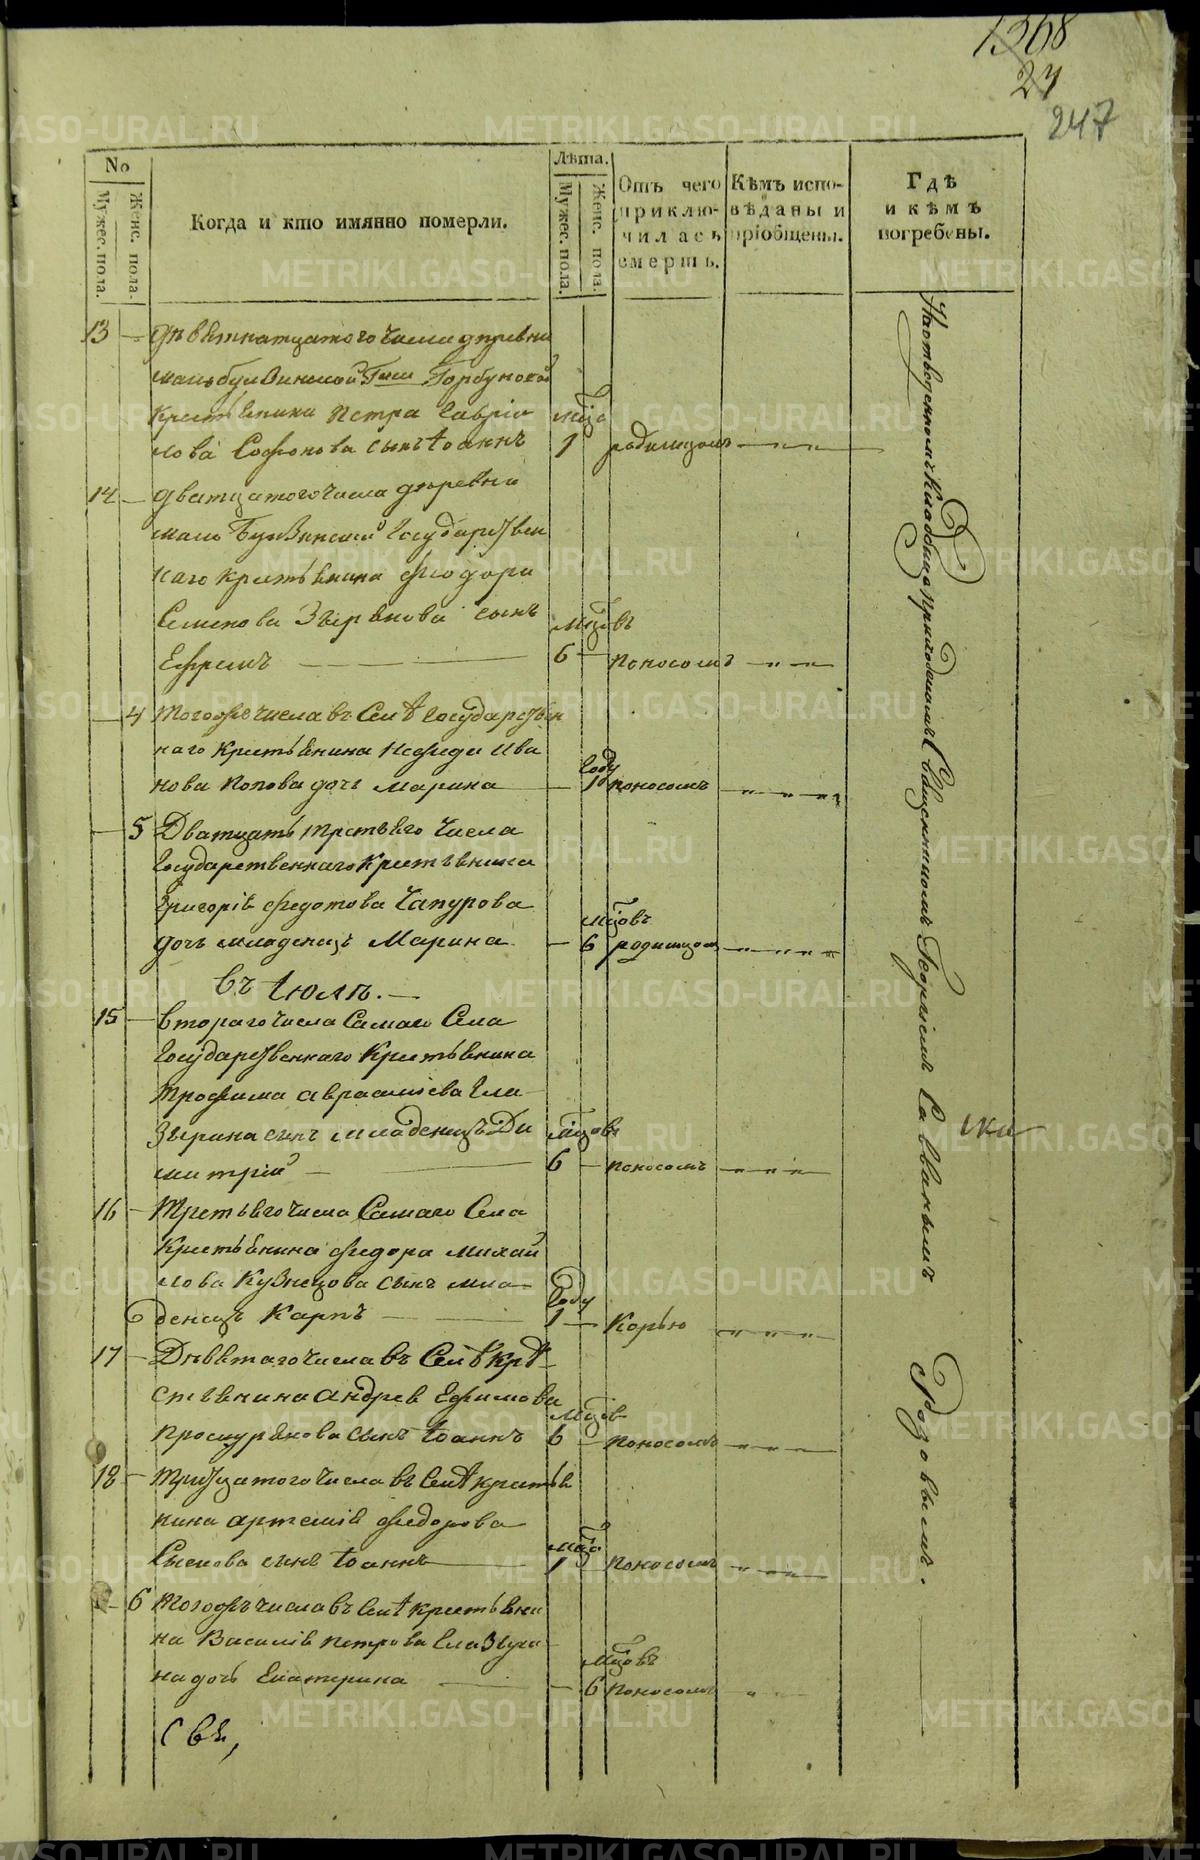 1368
24
247
No
Мужес. пола.
Женс. пола.
Когда и кто имянно померли.
Лѣта.
Мужес. пола.
Женс. пола.
Отъ чего приключилась смерть.
Кѣмъ исповѣданы и пріобщены.
Гдѣ и кѣмъ погребены.
13 — девѣтнатцатого числа деревни
мало булзинской Горбуновой
крестьѣнина Петра ГаврIи мцс
лова Софонова сынъ Iоаннъ 1 родимцомъ — „ „ —
14 — дватцатого числа деревни
мало Булзинской государствен
наго крестьѣнина Феодора
Семенова Звѣрѣнова сынъ мцовъ
Ефремъ — — 6 — поносомъ — „ — „ —
— 4 тогоже числа въ Селѣ государствен
наго крестьѣнина Нефеда Ива году
нова Попова дочь Марина — 1 поносомъ — „ — „ — „
— 5 Дватцать третьѣго числа
государственнаго крестьѣнина
Григорiѣ Федотова Чапурова мцовъ
дочь младенецъ Марина — 6 родимцомъ — „ — „ — „
въ Iюлѣ. —
15 — втораго числа Самаго Села
государственнаго крестьѣнина
Трофима Аврамiева Гла
зырина сынъ младенецъ Ди мцовъ
митрiй — — 6 — поносомъ — „ — „ —
16 — Третьѣго числа Самаго Села
крестьѣнина Федора Михаи
лова Кузнецова сынъ мла году
денецъ Карпъ — — 1 — Корью — „ — „ —
17 — Девѣтаго числа въ Селѣ Крѣ
стьѣнина Андреѣ Ефимова мцов
Проскурѣнова сынъ Iоаннъ 6 — поносомъ — „ — „ —
18 — тритцатого числа въ Селѣ крестьѣ
нина Артемiѣ Федорова мцс
Сыскова сынъ Iоаннъ — 1 поносомъ — „ — „ —
— 6 Тогожъ числа въ Селѣ крестьѣни
на Василiѣ Петрова Глазыри мцовъ
на дочь Екатерина — — 6 поносомъ „ —
На отведенномъ Кладбища приходскимъ Священникомъ Георгiемъ Савванымъ
Родовымъ. —